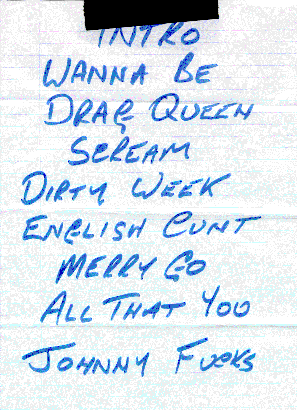 INTRO
WANNA BE
DRAG QUEEN
SCREAM
DIRTY WEEK
ENGLISH CUNT
MERRY GO
ALL THAT YOU
JOHNNY FUCKS